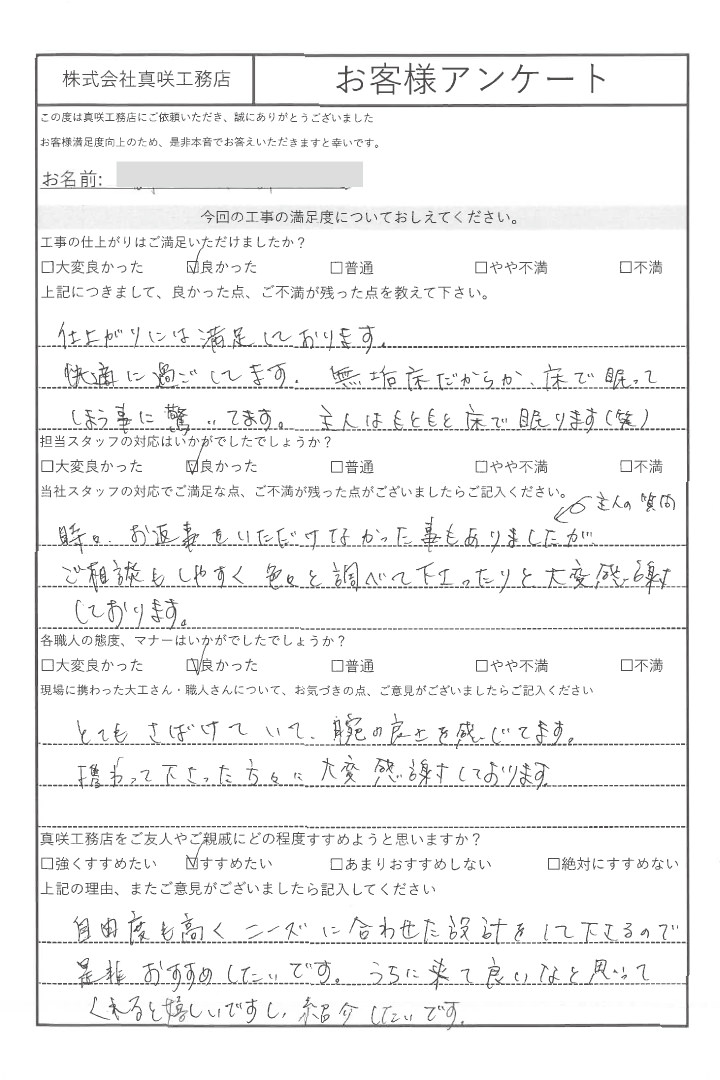 株式会社真咲工務店
お客様アンケート
この度は真咲工務店にご依頼いただき、誠にありがとうございました
お客様満足度向上のため、是非本音でお答えいただきますと幸いです。
お名前:
今回の工事の満足度についておしえてください。
工事の仕上がりはご満足いただけましたか？
□大変良かった ☑良かった □普通 □やや不満 □不満
上記につきまして、良かった点、ご不満が残った点を教えて下さい。
仕上がりには満足しております。
快適に過ごしてます。無垢床だからか、床で眠って
しまう事に驚いてます。主人はもともと床で眠ります(笑)
担当スタッフの対応はいかがでしたでしょうか？
□大変良かった ☑良かった □普通 □やや不満 □不満
当社スタッフの対応でご満足な点、ご不満が残った点がございましたらご記入ください。
主人の質問
時々、お返事をいただけなかった事もありましたが、
ご相談もしやすく色々と調べて下さったりと大変感謝
しております。
各職人の態度、マナーはいかがでしたでしょうか？
□大変良かった ☑良かった □普通 □やや不満 □不満
現場に携わった大工さん・職人さんについて、お気づきの点、ご意見がございましたらご記入ください
とてもさばけていて、腕の良さを感じてます。
携わって下さった方々に大変感謝しております
真咲工務店をご友人やご親戚にどの程度すすめようと思いますか？
□強くすすめたい ☑すすめたい □あまりおすすめしない □絶対にすすめない
上記の理由、またご意見がございましたら記入してください
自由度も高くニーズに合わせた設計をして下さるので
是非おすすめしたいです。うちに来て良いなと思って
くれると嬉しいですし、紹介したいです。